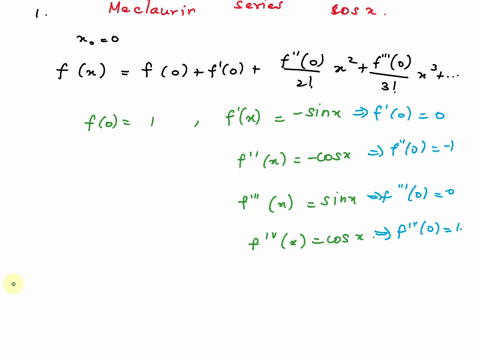 1. Maclaurin series cos x.
x₀ = 0
f(x) = f(0) + f'(0) + f''(0)/2! x² + f'''(0)/3! x³ + ...
f(0) = 1 , f'(x) = -sinx ⇒ f'(0) = 0
f''(x) = -cosx ⇒ f''(0) = -1
f'''(x) = sinx ⇒ f'''(0) = 0
f^IV(x) = cosx. ⇒ f^IV(0) = 1.